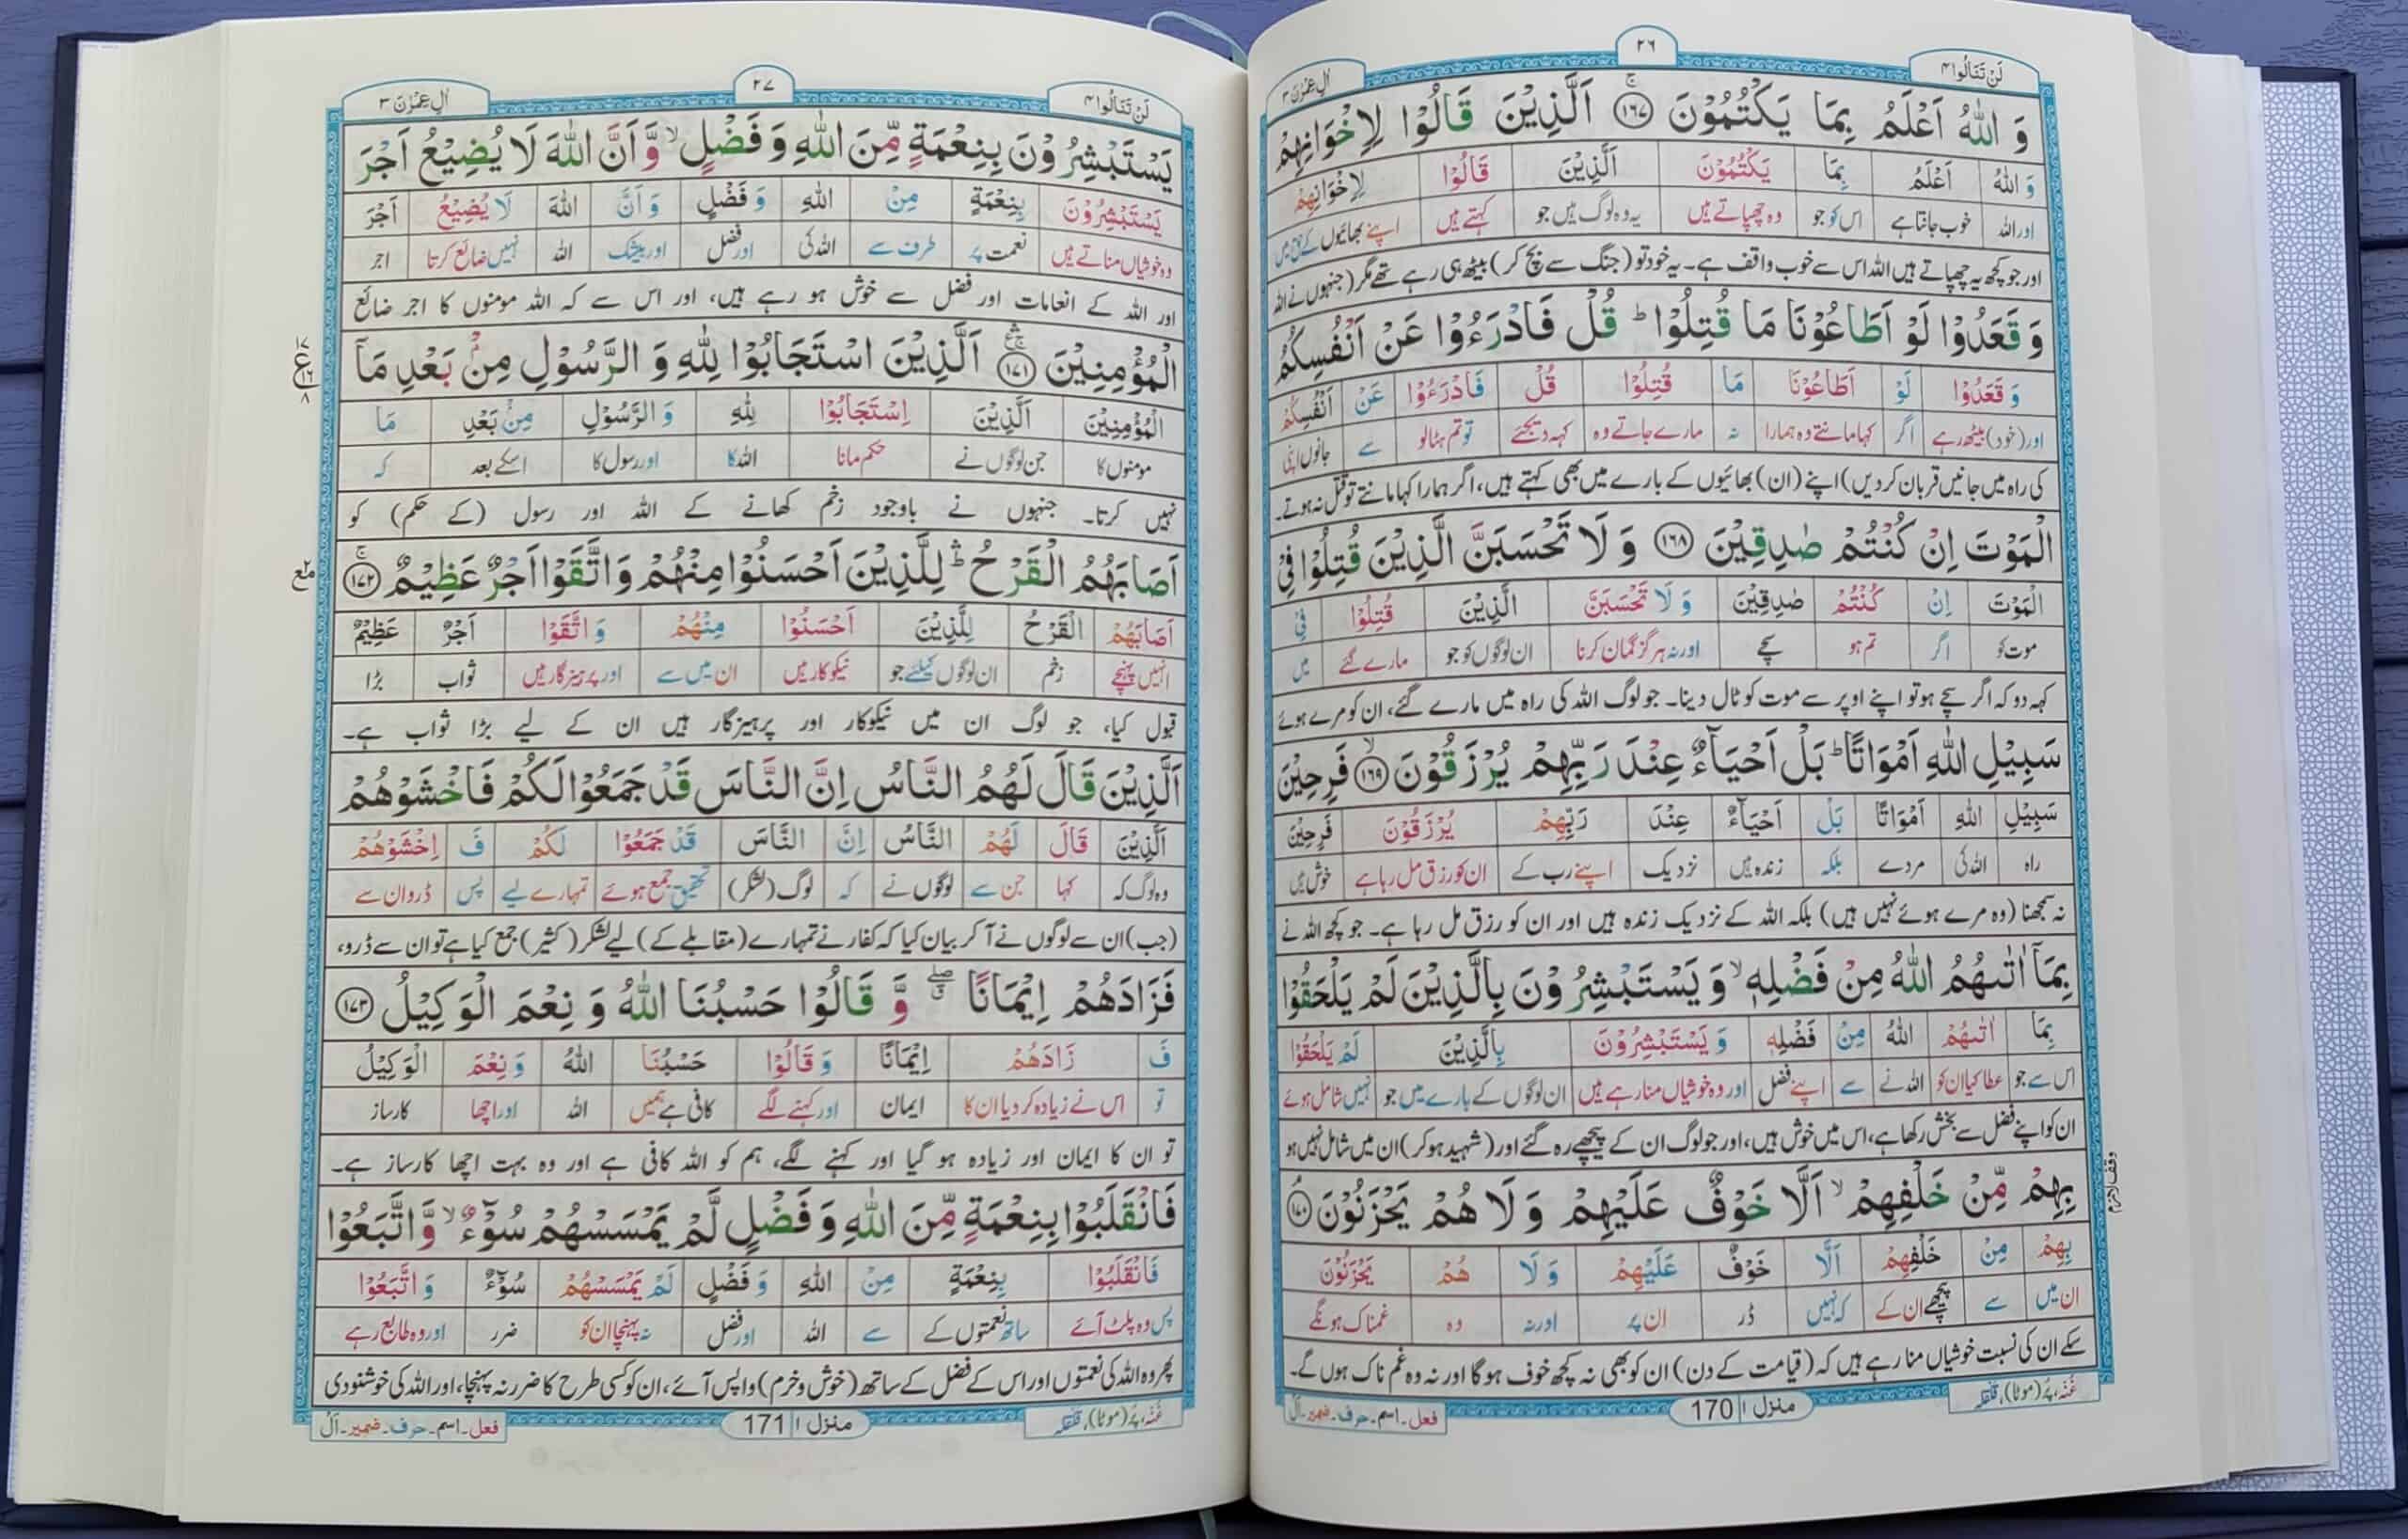 لَنْ تَنَالُوا ۴
۲۶
اٰلِ عِمْرٰنَ ۳
وَ اللّٰهُ اَعْلَمُ بِمَا يَكْتُمُوْنَ ۱۶۷ اَلَّذِيْنَ قَالُوْا لِاِخْوَانِهِمْ
وَ اللّٰهُ اَعْلَمُ بِمَا يَكْتُمُوْنَ اَلَّذِيْنَ قَالُوْا لِاِخْوَانِهِمْ
اور اللہ خوب جانتا ہے اس کو جو وہ چھپاتے ہیں یہ وہ لوگ ہیں جو کہتے ہیں اپنے بھائیوں کے حق میں
اور جو کچھ یہ چھپاتے ہیں اللہ اس سے خوب واقف ہے۔ یہ خود تو (جنگ سے بچ کر) بیٹھ ہی رہے تھے مگر (جنہوں نے اللہ
وَ قَعَدُوْا لَوْ اَطَاعُوْنَا مَا قُتِلُوْا ؕ قُلْ فَادْرَءُوْا عَنْ اَنْفُسِكُمُ
وَ قَعَدُوْا لَوْ اَطَاعُوْنَا مَا قُتِلُوْا قُلْ فَادْرَءُوْا عَنْ اَنْفُسِكُمُ
اور (خود) بیٹھ رہے اگر کہا مانتے وہ ہمارا نہ مارے جاتے وہ کہہ دیجئے تو تم ہٹا لو سے جانوں اپنی
کی راہ میں جانیں قربان کر دیں) اپنے (ان) بھائیوں کے بارے میں بھی کہتے ہیں، اگر ہمارا کہا مانتے تو قتل نہ ہوتے۔
الْمَوْتَ اِنْ كُنْتُمْ صٰدِقِيْنَ ۱۶۸ وَ لَا تَحْسَبَنَّ الَّذِيْنَ قُتِلُوْا فِيْ
الْمَوْتَ اِنْ كُنْتُمْ صٰدِقِيْنَ وَ لَا تَحْسَبَنَّ الَّذِيْنَ قُتِلُوْا فِيْ
موت کو اگر تم ہو سچے اور نہ ہرگز گمان کرنا ان لوگوں کو جو مارے گئے میں
کہہ دو کہ اگر سچے ہو تو اپنے اوپر سے موت کو ٹال دینا۔ جو لوگ اللہ کی راہ میں مارے گئے، ان کو مرے ہوئے
سَبِيْلِ اللّٰهِ اَمْوَاتًا ؕ بَلْ اَحْيَآءٌ عِنْدَ رَبِّهِمْ يُرْزَقُوْنَ ۱۶۹ فَرِحِيْنَ
سَبِيْلِ اللّٰهِ اَمْوَاتًا بَلْ اَحْيَآءٌ عِنْدَ رَبِّهِمْ يُرْزَقُوْنَ فَرِحِيْنَ
راہ اللہ کی مردے بلکہ زندہ ہیں نزدیک اپنے رب کے ان کو رزق مل رہا ہے خوش ہیں
نہ سمجھنا (وہ مرے ہوئے نہیں ہیں) بلکہ اللہ کے نزدیک زندہ ہیں اور ان کو رزق مل رہا ہے۔ جو کچھ اللہ نے
بِمَاۤ اٰتٰىهُمُ اللّٰهُ مِنْ فَضْلِهٖ ۙ وَ يَسْتَبْشِرُوْنَ بِالَّذِيْنَ لَمْ يَلْحَقُوْا
بِمَا اٰتٰىهُمُ اللّٰهُ مِنْ فَضْلِهٖ وَ يَسْتَبْشِرُوْنَ بِالَّذِيْنَ لَمْ يَلْحَقُوْا
اس سے جو عطا کیا ان کو اللہ نے سے اپنے فضل اور وہ خوشیاں منا رہے ہیں ان لوگوں کے بارے میں جو نہیں شامل ہوئے
ان کو اپنے فضل سے بخش رکھا ہے، اس میں خوش ہیں، اور جو لوگ ان کے پیچھے رہ گئے اور (شہید ہو کر) ان میں شامل نہیں ہو
بِهِمْ مِّنْ خَلْفِهِمْ ۙ اَلَّا خَوْفٌ عَلَيْهِمْ وَ لَا هُمْ يَحْزَنُوْنَ ۱۷۰
بِهِمْ مِنْ خَلْفِهِمْ اَلَّا خَوْفٌ عَلَيْهِمْ وَ لَا هُمْ يَحْزَنُوْنَ
ان میں سے پیچھے ان کے کہ نہیں ڈر ان پر اور نہ وہ غمناک ہونگے
سکے ان کی نسبت خوشیاں منا رہے ہیں کہ (قیامت کے دن) ان کو بھی نہ کچھ خوف ہوگا اور نہ وہ غم ناک ہوں گے۔
غُنّہ، پُر (موٹا)، قلقلہ
منزل ۱ 170
فعل۔ اسم۔ حرف۔ ضمیر۔ اَلْ
لَنْ تَنَالُوا ۴
۲۷
اٰلِ عِمْرٰنَ ۳
يَسْتَبْشِرُوْنَ بِنِعْمَةٍ مِّنَ اللّٰهِ وَ فَضْلٍ ۙ وَّ اَنَّ اللّٰهَ لَا يُضِيْعُ اَجْرَ
يَسْتَبْشِرُوْنَ بِنِعْمَةٍ مِنَ اللّٰهِ وَ فَضْلٍ وَ اَنَّ اللّٰهَ لَا يُضِيْعُ اَجْرَ
وہ خوشیاں مناتے ہیں نعمت پر طرف سے اللہ کی اور فضل اور بیشک اللہ نہیں ضائع کرتا اجر
اور اللہ کے انعامات اور فضل سے خوش ہو رہے ہیں، اور اس سے کہ اللہ مومنوں کا اجر ضائع
الْمُؤْمِنِيْنَ ۱۷۱ اَلَّذِيْنَ اسْتَجَابُوْا لِلّٰهِ وَ الرَّسُوْلِ مِنْۢ بَعْدِ مَاۤ
الْمُؤْمِنِيْنَ اَلَّذِيْنَ اِسْتَجَابُوْا لِلّٰهِ وَ الرَّسُوْلِ مِنْۢ بَعْدِ مَا
مومنوں کا جن لوگوں نے حکم مانا اللہ کا اور رسول کا اسکے بعد کہ
نہیں کرتا۔ جنہوں نے باوجود زخم کھانے کے اللہ اور رسول (کے حکم) کو
اَصَابَهُمُ الْقَرْحُ ۛؕ لِلَّذِيْنَ اَحْسَنُوْا مِنْهُمْ وَ اتَّقَوْا اَجْرٌ عَظِيْمٌ ۱۷۲
اَصَابَهُمُ الْقَرْحُ لِلَّذِيْنَ اَحْسَنُوْا مِنْهُمْ وَ اتَّقَوْا اَجْرٌ عَظِيْمٌ
انہیں پہنچے زخم ان لوگوں کیلئے جو نیکو کار ہیں ان میں سے اور پرہیزگار ہیں ثواب بڑا
قبول کیا، جو لوگ ان میں نیکوکار اور پرہیزگار ہیں ان کے لیے بڑا ثواب ہے۔
اَلَّذِيْنَ قَالَ لَهُمُ النَّاسُ اِنَّ النَّاسَ قَدْ جَمَعُوْا لَكُمْ فَاخْشَوْهُمْ
اَلَّذِيْنَ قَالَ لَهُمُ النَّاسُ اِنَّ النَّاسَ قَدْ جَمَعُوْا لَكُمْ فَ اِخْشَوْهُمْ
وہ لوگ کہ کہا جن سے لوگوں نے کہ لوگ (لشکر) تحقیق جمع ہوئے تمہارے لیے پس ڈرو ان سے
(جب) ان سے لوگوں نے آ کر بیان کیا کہ کفار نے تمہارے (مقابلے کے) لیے لشکر (کثیر) جمع کیا ہے تو ان سے ڈرو،
فَزَادَهُمْ اِيْمَانًا ۖ وَّ قَالُوْا حَسْبُنَا اللّٰهُ وَ نِعْمَ الْوَكِيْلُ ۱۷۳
فَ زَادَهُمْ اِيْمَانًا وَ قَالُوْا حَسْبُنَا اللّٰهُ وَ نِعْمَ الْوَكِيْلُ
تو اس نے زیادہ کر دیا ان کا ایمان اور کہنے لگے کافی ہے ہمیں اللہ اور اچھا کارساز
تو ان کا ایمان اور زیادہ ہو گیا اور کہنے لگے، ہم کو اللہ کافی ہے اور وہ بہت اچھا کارساز ہے۔
فَانْقَلَبُوْا بِنِعْمَةٍ مِّنَ اللّٰهِ وَ فَضْلٍ لَّمْ يَمْسَسْهُمْ سُوْٓءٌ ۙ وَّ اتَّبَعُوْا
فَانْقَلَبُوْا بِنِعْمَةٍ مِنَ اللّٰهِ وَ فَضْلٍ لَمْ يَمْسَسْهُمْ سُوْٓءٌ وَ اتَّبَعُوْا
پس وہ پلٹ آئے ساتھ نعمتوں کے سے اللہ اور فضل نہ پہنچا ان کو ضرر اور وہ تابع رہے
پھر وہ اللہ کی نعمتوں اور اس کے فضل کے ساتھ (خوش و خرم) واپس آئے، ان کو کسی طرح کا ضرر نہ پہنچا، اور اللہ کی خوشنودی
غُنّہ، پُر (موٹا)، قلقلہ
منزل ۱ 171
فعل۔ اسم۔ حرف۔ ضمیر۔ اَلْ